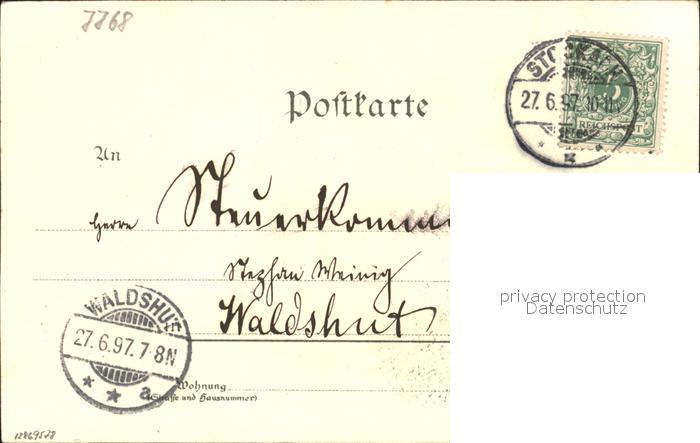 7768
STOCKACH
27.6.97.10-11V
5
REICHSPOST
Postkarte
An
Herrn Steuerkomm
Stephan Weinig
Waldshut
WALDSHUT
27.6.97.7-8N
a
Wohnung
(Straße und Hausnummer)
privacy protection
Datenschutz
12869578